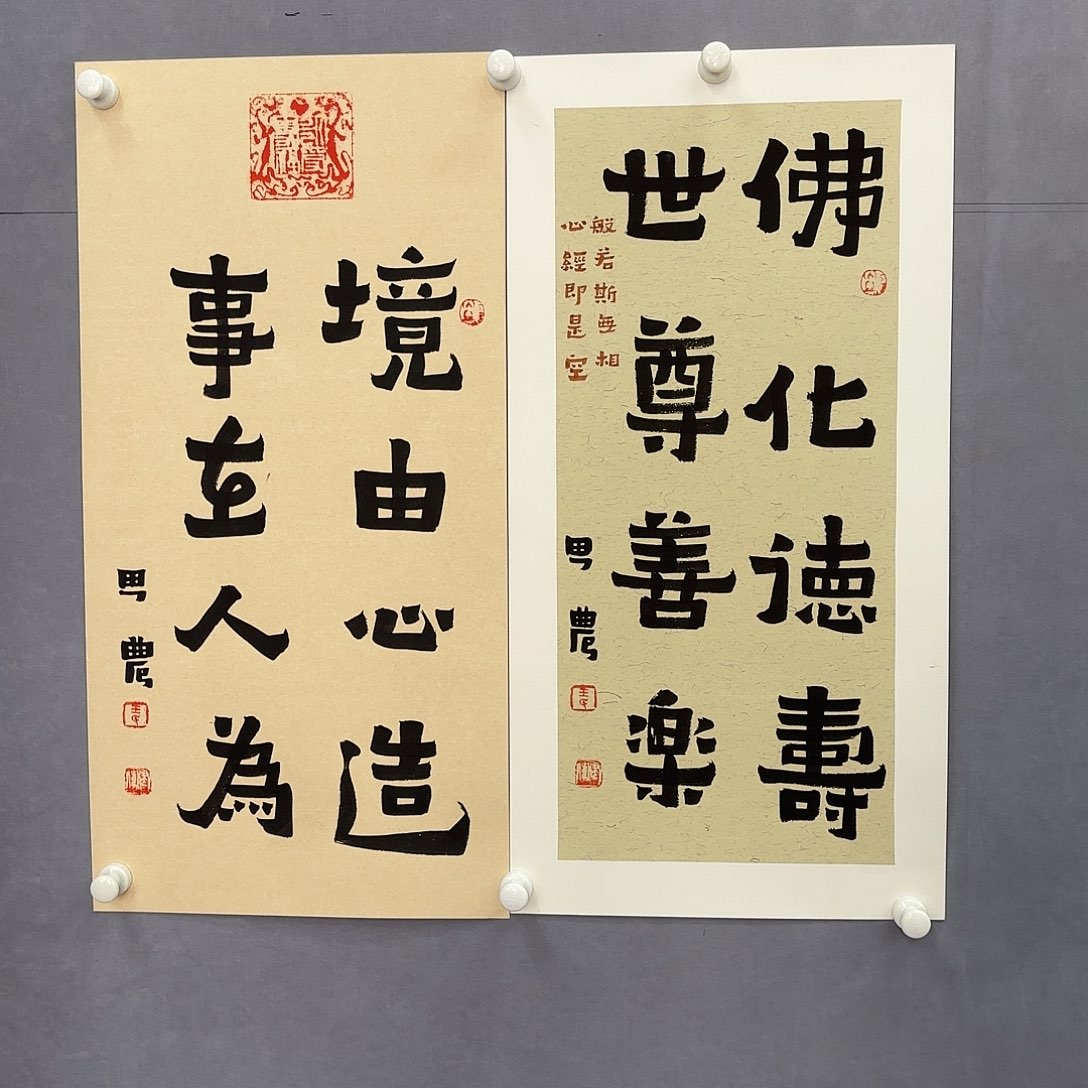 佛化德壽
世尊善楽
般若斯無相
心經即是空
農
境由心造
事在人為
農